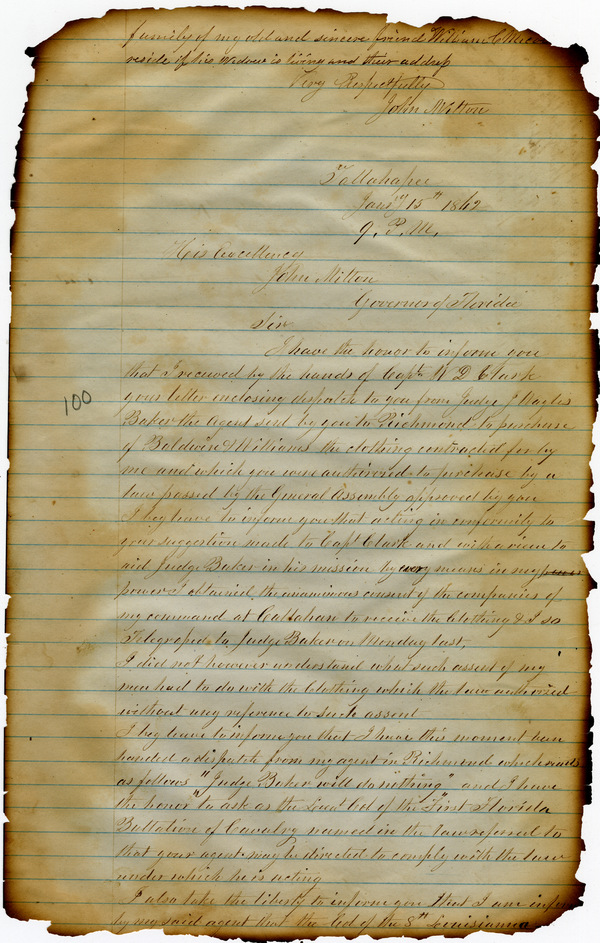 family of my old and sincere friend William C
reside if his Widow is living and their address
Very Respectfully
John Milton
Tallahassee
Jany 15th 1862
9. P.M.
His Excellency
John Milton
Governor of Florida
Sir
I have the honor to inform you
that I received by the hands of Capt W D Clark
100
your letter inclosing despatch to you from Judge J Wayles
Baker the Agent sent by you to Richmond to purchase
of Baldwin & Williams the clothing contracted for by
me and which you were authorized to purchase by a
law passed by the General Assembly approved by you
I beg leave to inform you that acting in conformity to
your suggestion made to Capt Clark and with a view to
aid Judge Baker in his mission by every means in my
power I obtained the unanimous consent of the companies of
my command at Callahan to receive the Clothing & I so
Telegraped to Judge Baker on Monday last,
I did not however understand what such assent of my
men had to do with the Clothing which the law authorized
without any reference to such assent
I beg leave to inform you that I have this moment been
handed a dispatch from my agent in Richmond which reads
as follows "Judge Baker will do nothing" and I have
the honor to ask as the Lieut Col of the "First Florida
Battalion of Cavalry" named in the law referred to
that your agent may be directed to comply with the law
under which he is acting
I also take the liberty to inform you that I am
by my said agent that the Col of the 8th Louisiana